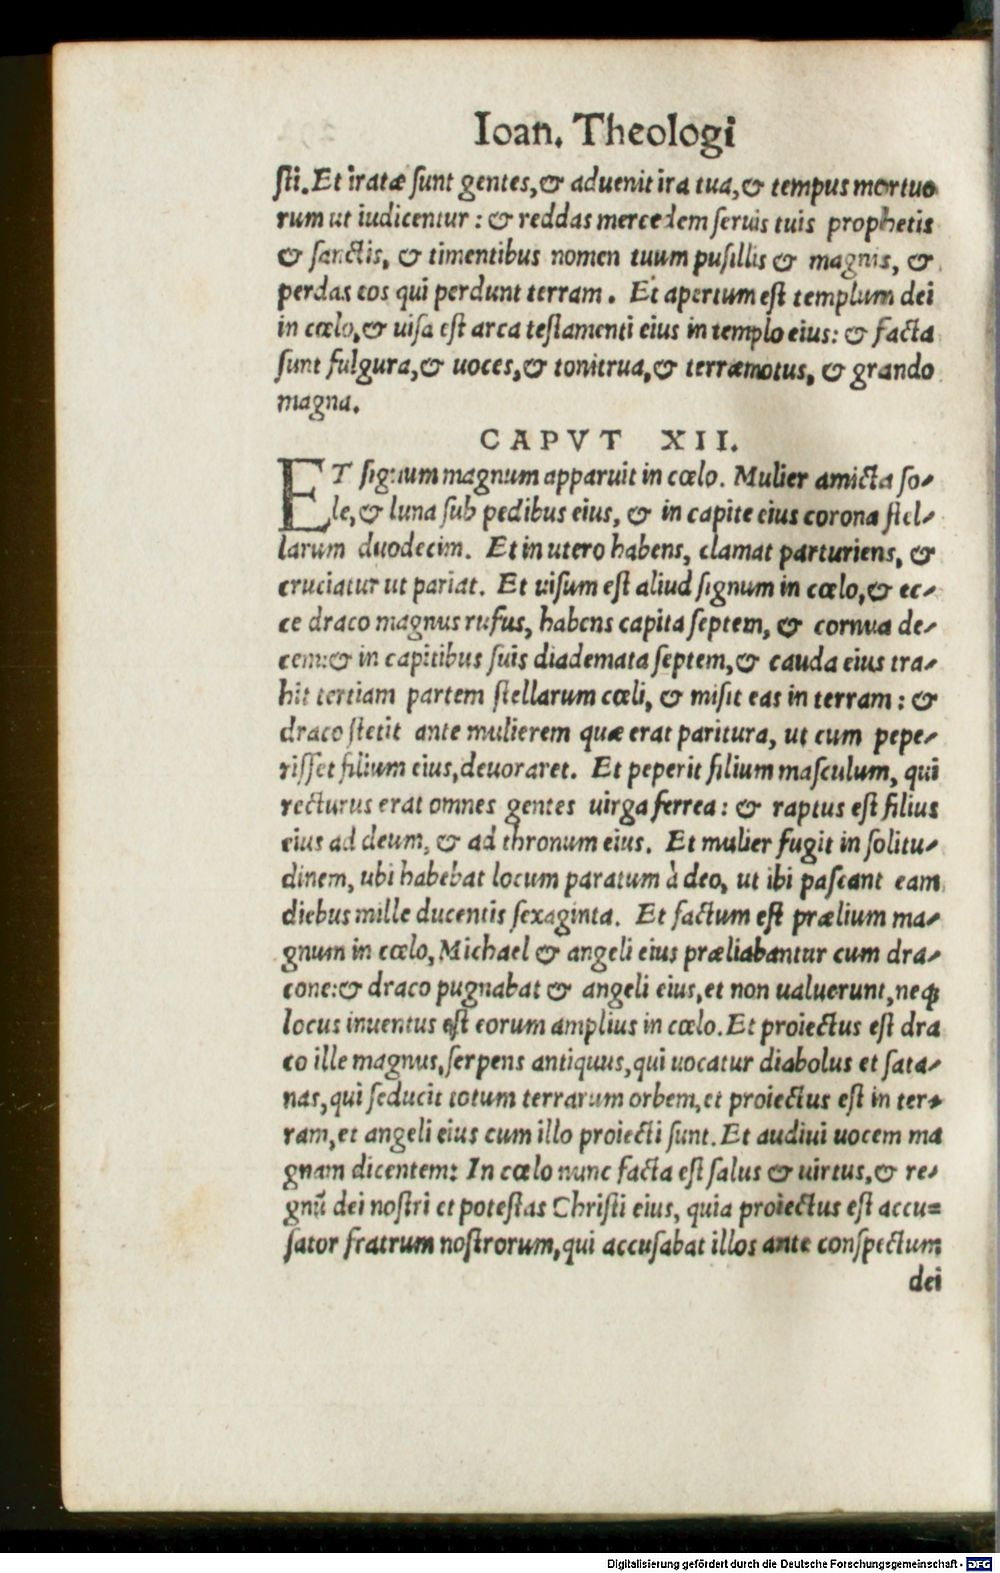 Ioan. Theologi
ſti. Et iratæ ſunt gentes, & aduenit ira tua, & tempus mortuo
rum ut iudicentur: & reddas mercedem ſeruis tuis prophetis
& ſanctis, & timentibus nomen tuum puſillis & magnis, &
perdas eos qui perdunt terram. Et apertum eſt templum dei
in cœlo, & uiſa eſt arca teſtamenti eius in templo eius: & facta
ſunt fulgura, & uoces, & tonitrua, & terræmotus, & grando
magna.
CAPVT XII.
ET ſignum magnum apparuit in cœlo. Mulier amicta ſo-
le, & luna ſub pedibus eius, & in capite eius corona ſtel-
larum duodecim. Et in utero habens, clamat parturiens, &
cruciatur ut pariat. Et uiſum eſt aliud ſignum in cœlo, & ec-
ce draco magnus rufus, habens capita ſeptem, & cornua de-
cem: & in capitibus ſuis diademata ſeptem, & cauda eius tra-
hit tertiam partem ſtellarum cœli, & miſit eas in terram: &
draco ſtetit ante mulierem quæ erat paritura, ut cum pepe-
riſſet filium eius, deuoraret. Et peperit filium maſculum, qui
recturus erat omnes gentes uirga ferrea: & raptus eſt filius
eius ad deum, & ad thronum eius. Et mulier fugit in ſolitu-
dinem, ubi habebat locum paratum à deo, ut ibi paſcant eam
diebus mille ducentis ſexaginta. Et factum eſt prælium ma-
gnum in cœlo, Michael & angeli eius præliabantur cum dra-
cone: & draco pugnabat & angeli eius, et non ualuerunt, neq;
locus inuentus eſt eorum amplius in cœlo. Et proiectus eſt dra
co ille magnus, ſerpens antiquus, qui uocatur diabolus et ſata-
nas, qui ſeducit totum terrarum orbem, et proiectus eſt in ter-
ram, et angeli eius cum illo proiecti ſunt. Et audiui uocem ma
gnam dicentem: In cœlo nunc facta eſt ſalus & uirtus, & re-
gnū dei noſtri et poteſtas Chriſti eius, quia proiectus eſt accu=
ſator fratrum noſtrorum, qui accuſabat illos ante conſpectum
dei
Digitalisierung gefördert durch die Deutsche Forschungsgemeinschaft - DFG